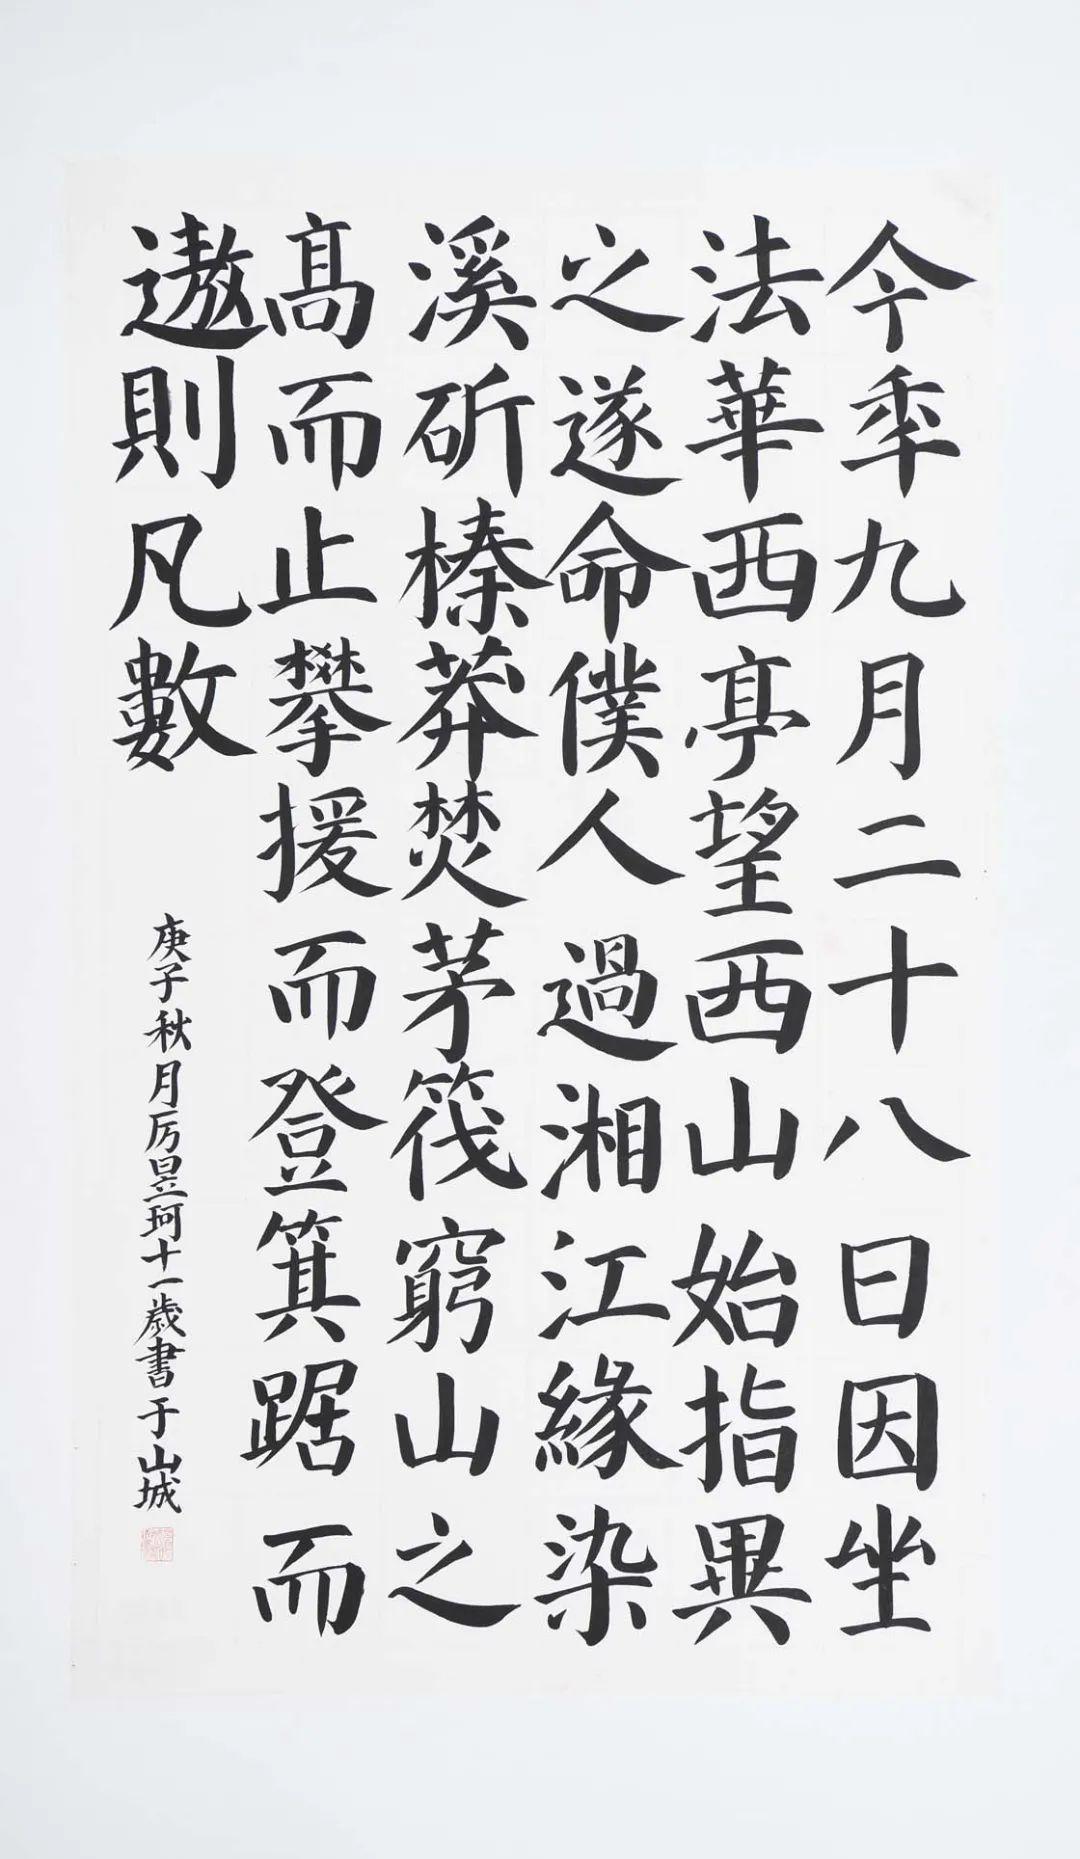 今年九月二十八日因坐
法華西亭望西山始指異
之遂命僕人過湘江緣染
溪斫榛莽焚茅筏窮山之
高而止攀援而登箕踞而
遨則凡數
庚子秋月厉昱珂十一歲書于山城